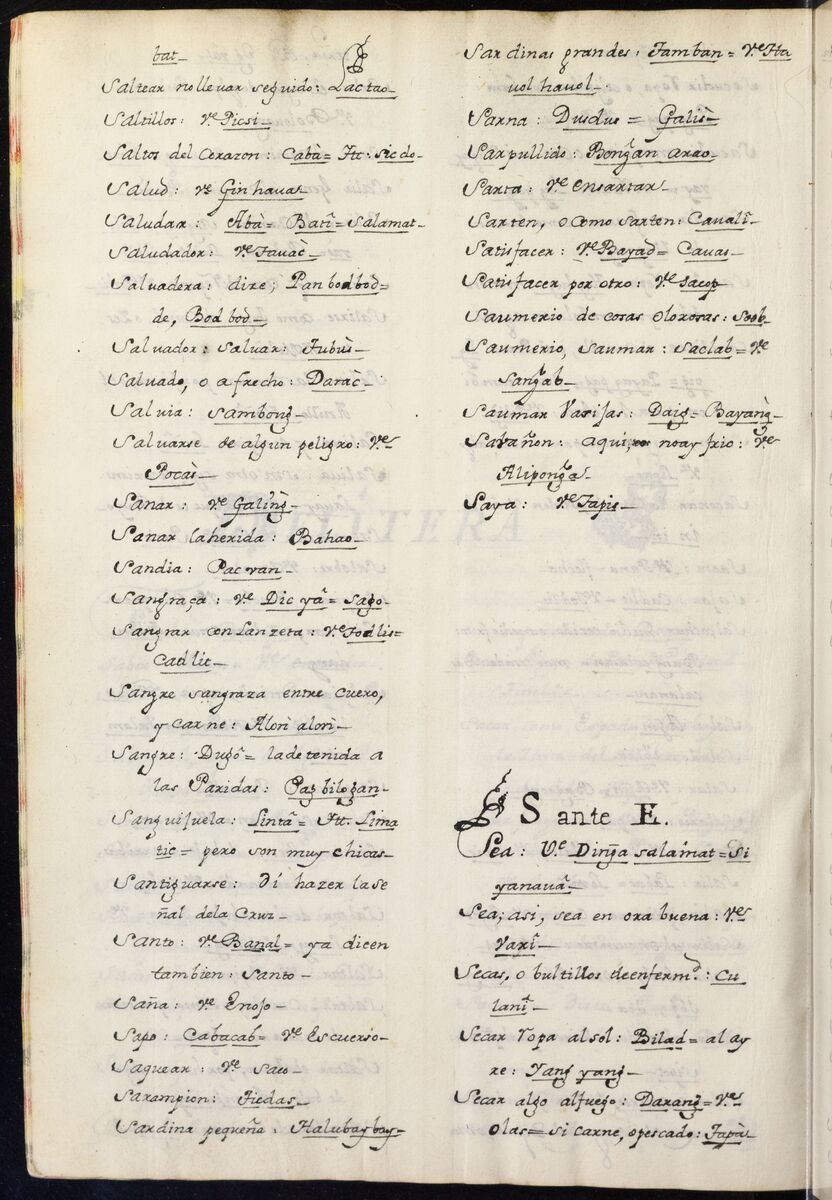 bat_
Saltear no llevar seguido: Lactao_
Saltillos: Ve Picsi_
Saltos del Corazon: Cabà= Itt: Sicdo_
Salud: Ve Ginhavas
Saludar: Abà= Batî= Salamat_
Saludador: Ve Tavàc_
Salvadera: dire; Pan bodbod=
de, Bod bod_
Salvador: Salvar: Tubùs_
Salvado, o afrecho: Daràc_
Salvia: Sambong_
Salvarse de algun peligro: Ves
Pocàs_
Sanar: Ve Galìng_
Sanar la herida: Bahao_
Sandia: Pacvan_
Sangraça: Ve Dic yâ= Sago_
Sangrar con Lanzeta: Ve Todlis=
Cadlit_
Sangre sangraza entre cuero,
y carne: Alori alorì_
Sangre: Dugô= la detenida a
las Paridas: Pagbilogan_
Sanguijuela: Lintâ= Itt. Lima
tic= pero son muy chicas_
Santiguarse: di hazer la se
ñal dela Cruz_
Santo: Ve Banal= ya dicen
tambien: Santo_
Saña: Ve Enojo_
Sapo: Cabacab= Ve Escuerso_
Saquear: Ve Saco_
Sarampion: Tiedas_
Sardina pequeña: Halubaybay_
Sardinas grandes: Tamban= Ve Ita
uol hauol_
Sarna: Dusdus= Galìs_
Sarpullido: Bongan arao_
Sarta: Ve ensartar_
Sarten, o como sarten: Cavalî_
Satisfacer: Ve Bayad= Cavas_
Satisfacer por otro: Ve Sacop
Saumerio de cosas olorosas: Soob_
Saumerio, saumar: Saclab= Ve
Sangab_
Saumar Vasijas: Daig= Bayang_
Sabañon: aqui, no ay frio: Ve
Aliponga_
Saya: Ve Tapis_
S ante E.
Sea: Ve Dinga salamat= Si
yanauâ_
Sea; asi, sea en ora buena: Ves
Varî_
Secas, o bultillos de enfermd: Cu
lanî_
Secar Ropa al sol: Bilad= al ay
re: Yang yang_
Secar algo al fuego: Darang= Ves
olas= si carne, o pescado: Tapà_